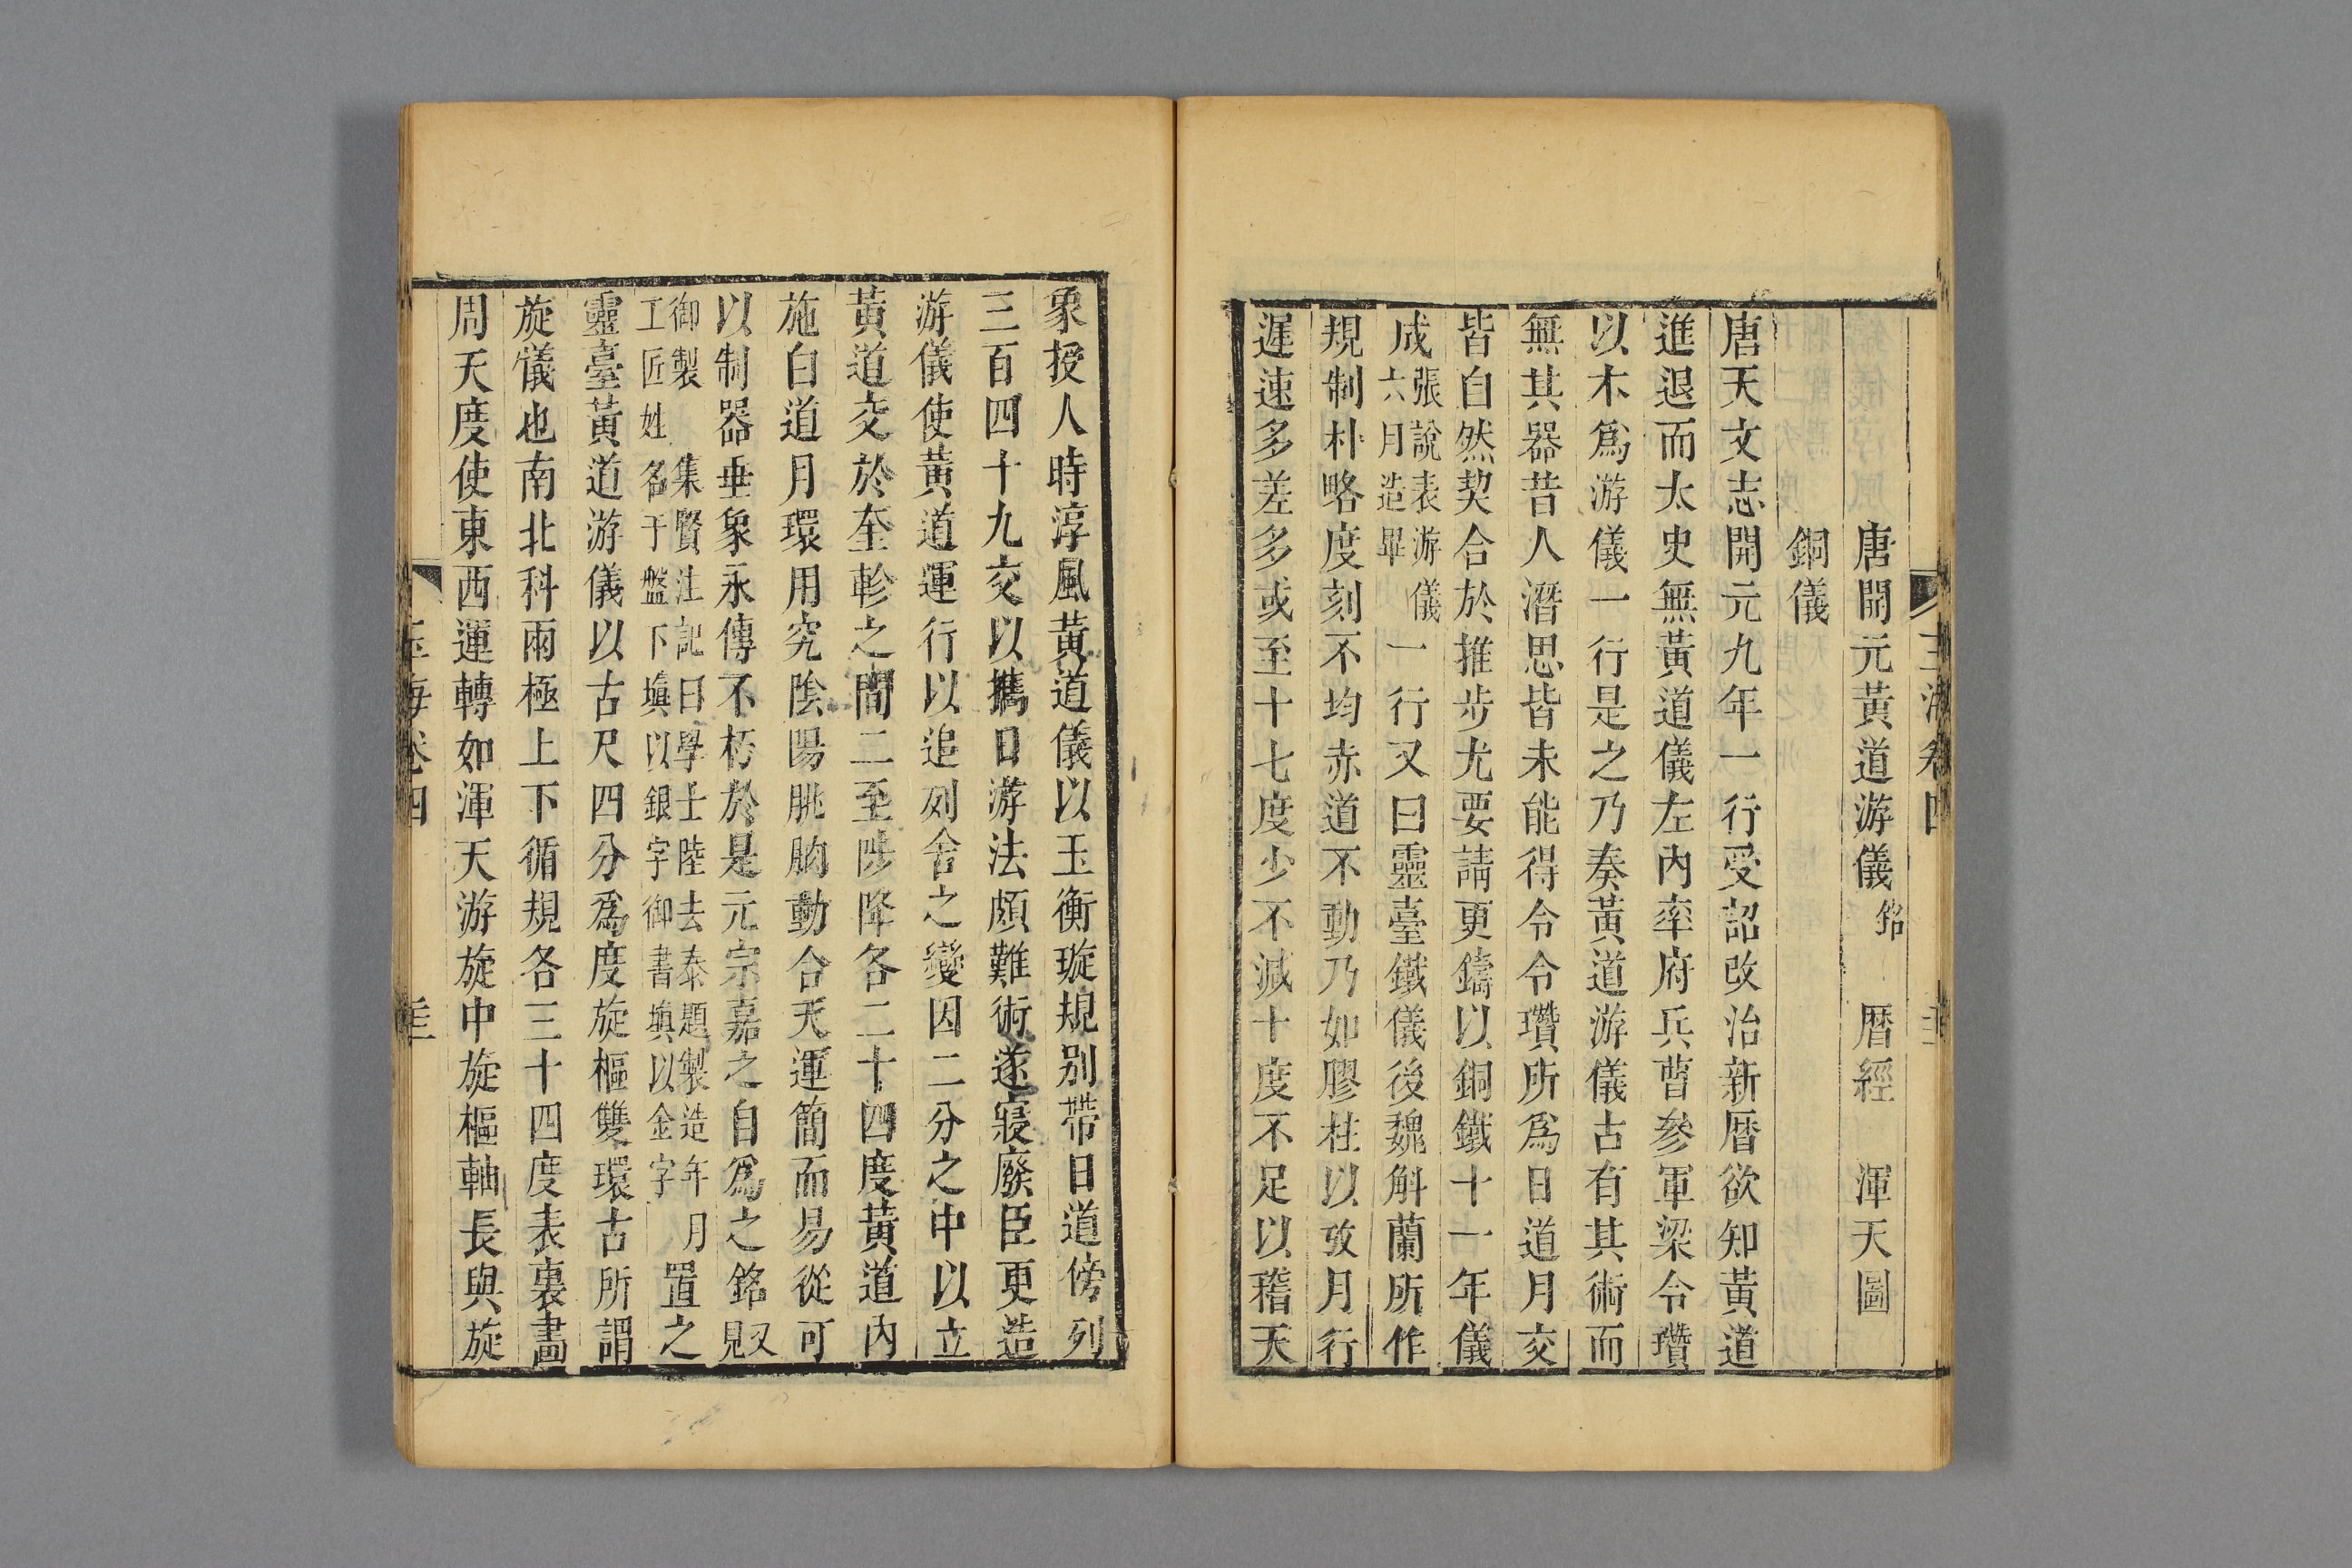 唐開元黃道游儀銘 曆經 渾天圖
銅儀
唐天文志開元九年一行受詔改治新曆欲知黃道
進退而太史無黃道儀左內率府兵曹參軍梁令瓚
以木爲游儀一行是之乃奏黃道游儀古有其術而
無其器昔人潛思皆未能得今令瓚所爲日道月交
皆自然契合於推步尤要請更鑄以銅鐵十一年儀
成張說表游儀六月造畢一行又曰靈臺鐵儀後魏斛蘭所作
規制朴略度刻不均赤道不動乃如膠柱以攷月行
遲速多差多或至十七度少不減十度不足以稽天
象授人時淳風黃道儀以玉衡璇規別帶日道傍列
三百四十九交以攜日游法頗難術遂寢廢臣更造
游儀使黃道運行以追列舍之變因二分之中以立
黃道交於奎軫之間二至陟降各二十四度黃道內
施白道月環用究陰陽朓朒動合天運簡而易從可
以制器垂象永傳不朽於是元宗嘉之自爲之銘又見
御製 集賢注記曰學士陸去泰題製造年月工匠姓名于盤下塡以銀字御書塡以金字置之
靈臺黃道游儀以古尺四分爲度旋樞雙環古所謂
旋儀也南北科兩極上下循規各三十四度表裏畫
周天度使東西運轉如渾天游旋中旋樞軸長與旋
玉海卷四